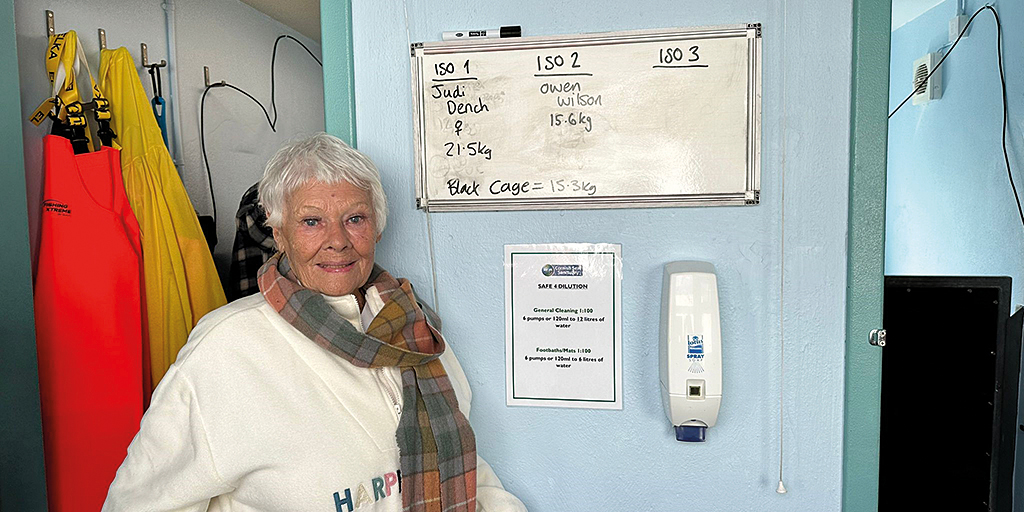 ISO 1
Judi
Dench
♀
21.5kg
ISO 2
owen
wilson
15.6kg
ISO 3
Black Cage = 15.3kg
Cornish Seal
Sanctuary
SAFE 4 DILUTION
General Cleaning 1:100
6 pumps or 120ml to 12 litres of
water
Footbaths/Mats 1:100
6 pumps or 120ml to 6 litres of
water
SPRAY
SOAP
HARP